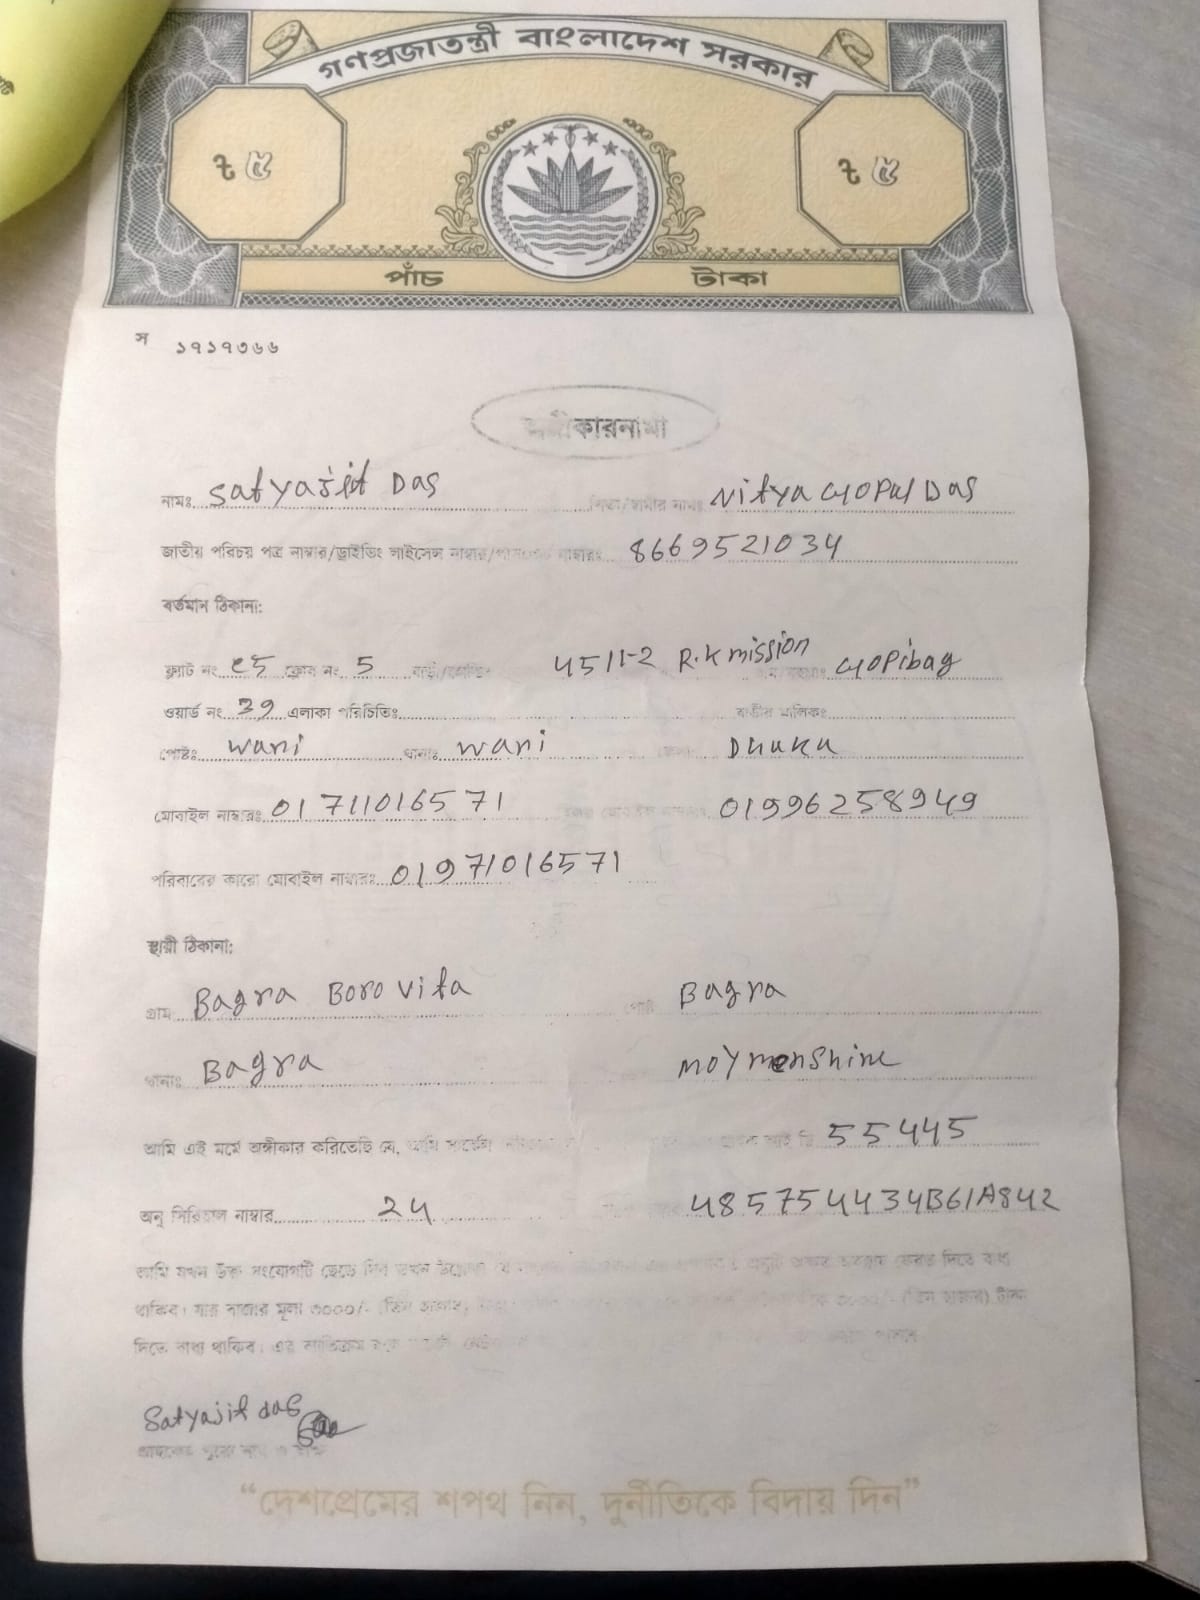 গণপ্রজাতন্ত্রী বাংলাদেশ সরকার
৳ ৫ ৳ ৫
পাঁচ টাকা
স ১৭১৭৩৬৬
অঙ্গীকারনামা
নামঃ Satyajit Das পিতা/স্বামীর নামঃ Nitya Gopal Das
জাতীয় পরিচয় পত্র নাম্বার/ড্রাইভিং লাইসেন্স নাম্বার/পাসপোর্ট নাম্বারঃ 8669521034
বর্তমান ঠিকানা:
ফ্ল্যাট নং e5 ফ্লোর নং 5 R.K mission Gopibag
ওয়ার্ড নং 39 এলাকা পরিচিতিঃ বাড়ীর মালিকঃ
পোষ্টঃ wari থানাঃ wari জেলা Dhaka
মোবাইল নাম্বারঃ 01711016571 মোবাইল নাম্বারঃ 01996258949
পরিবারের কারো মোবাইল নাম্বারঃ 01971016571
স্থায়ী ঠিকানা:
গ্রাম Bagra Boro vita পোষ্ট Bagra
থানাঃ Bagra moymenshine
আমি এই মর্মে অঙ্গীকার করিতেছি যে, আমি 55445
অনু সিরিয়াল নাম্বার 24 485754434B61A842
আমি যখন উক্ত সংযোগটি ছেড়ে দিব তখন ফেরত দিতে বাধ্য
থাকিব। যার বাজার মূল্য ৩০০০/- (তিন হাজার) ৩০০০/- (তিন হাজার) টাকা
দিতে বাধ্য থাকিব। এর ব্যতিক্রম
Satyajit das
“দেশপ্রেমের শপথ নিন, দুর্নীতিকে বিদায় দিন”